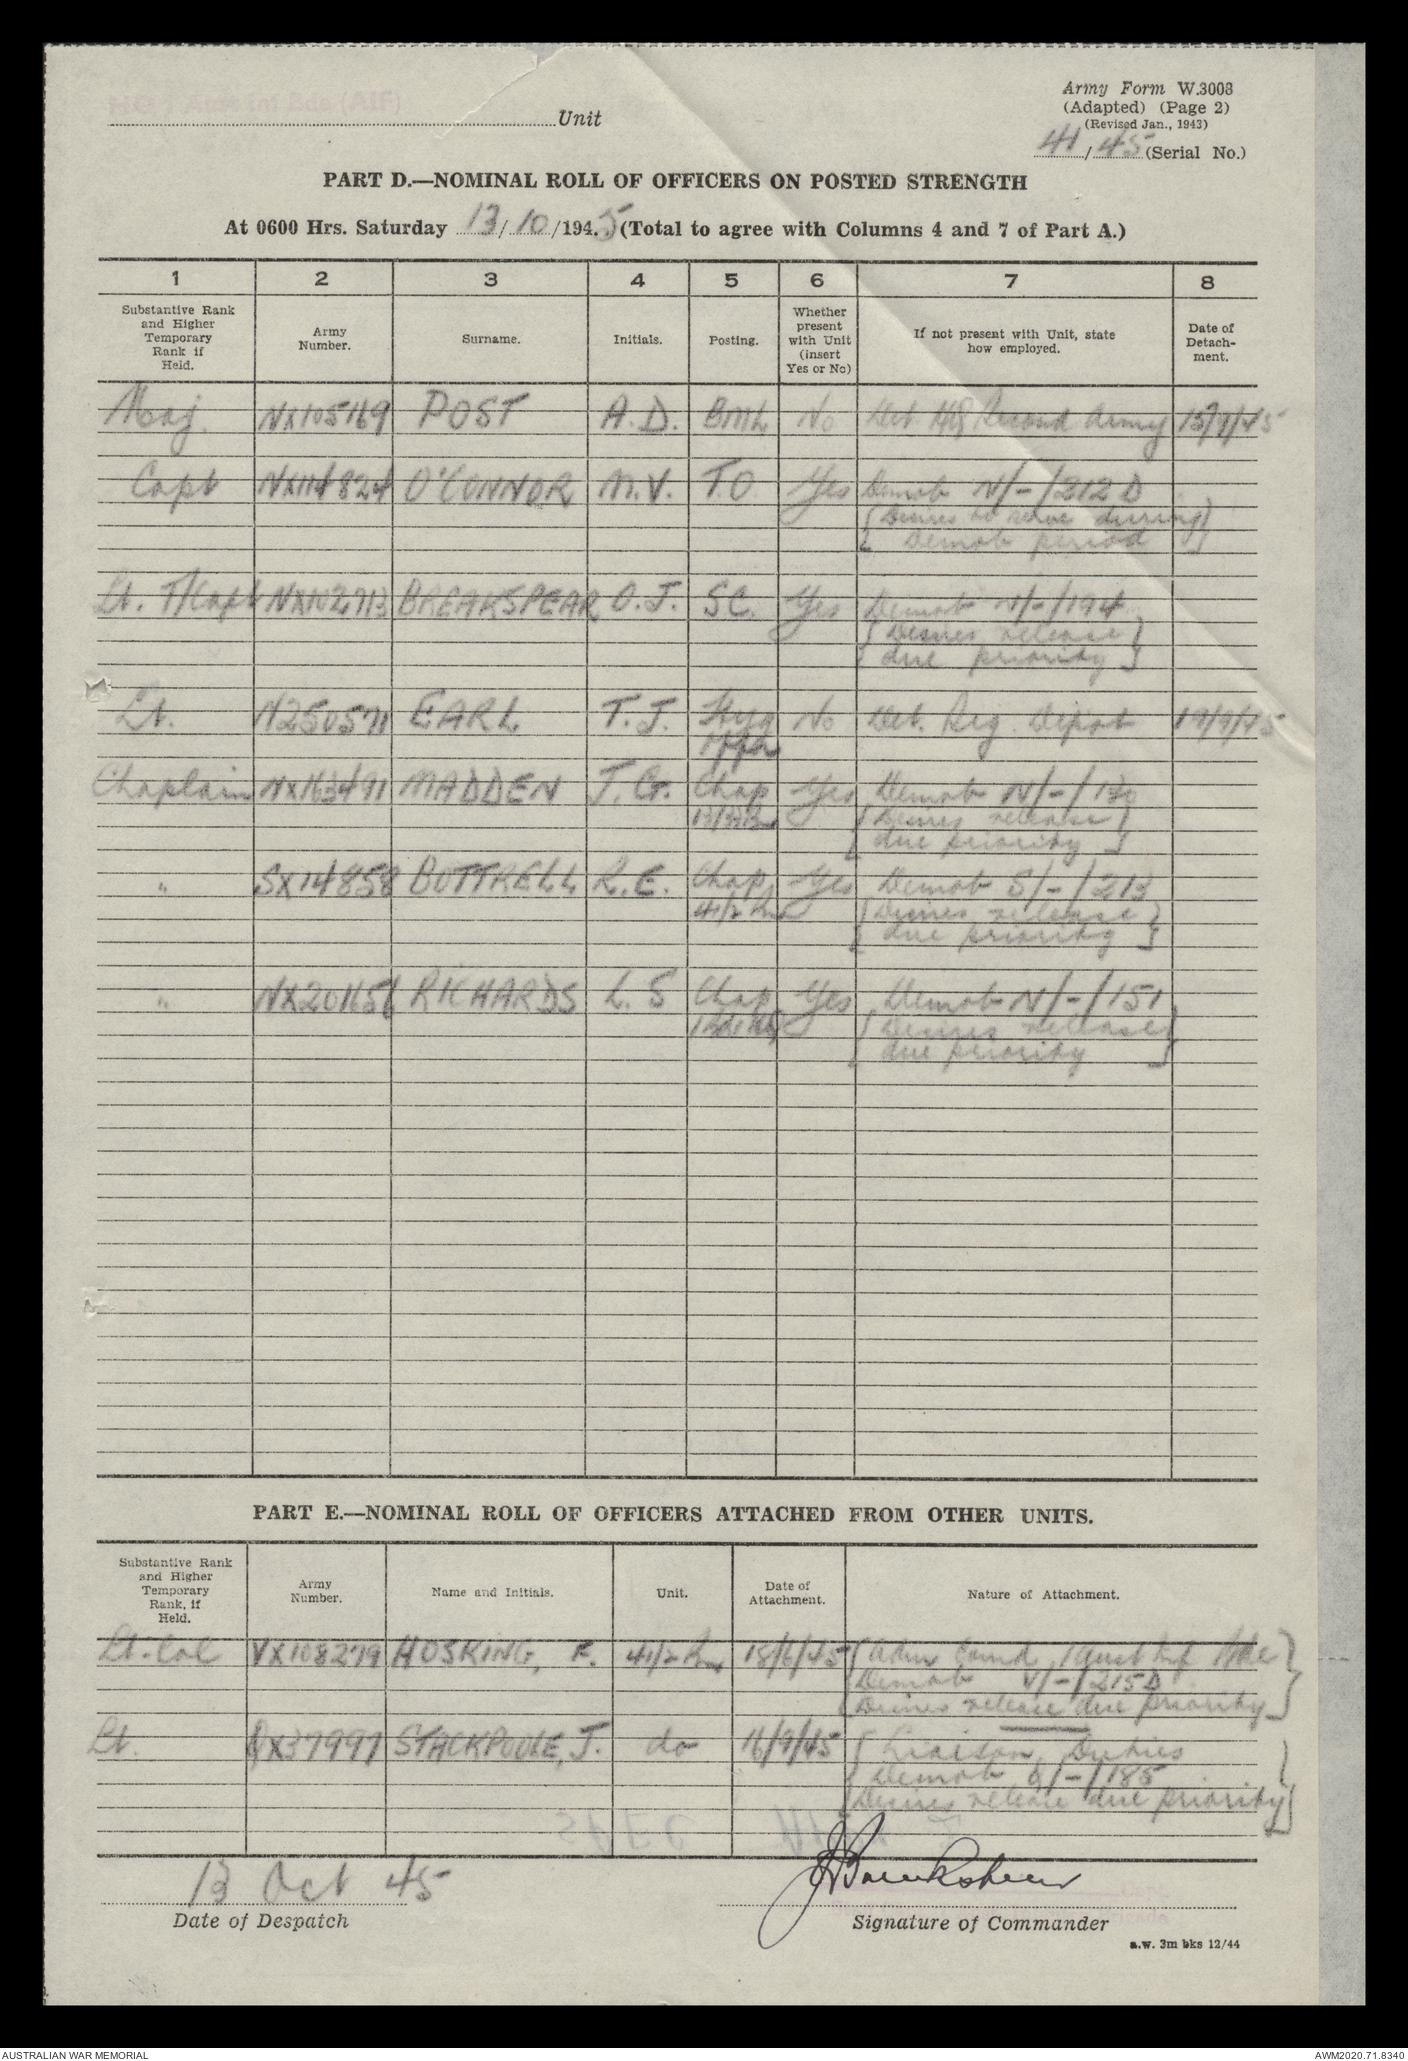 HQ 1 Aust Inf Bde (AIF)
Unit
Army Form W.3008
(Adapted) (Page 2)
(Revised Jan., 1943)
41/45 (Serial No.)
PART D.—NOMINAL ROLL OF OFFICERS ON POSTED STRENGTH
At 0600 Hrs. Saturday 13/10/1945 (Total to agree with Columns 4 and 7 of Part A.)
1 2 3 4 5 6 7 8
Substantive Rank and Higher Temporary Rank if Held. Army Number. Surname. Initials. Posting. Whether present with Unit (insert Yes or No) If not present with Unit, state how employed. Date of Detachment.
Maj. NX105169 POST A.D. BML No Det. HQ Second Army
Capt NX114824 O'CONNOR M.V. T.O. Yes Demob N/-/212 D
{Desires to serve during}
{Demob period}
Lt. T/Capt NX102713 BREAKSPEAR O.J. SC. Yes Demob N/-/194
{Desires release}
{due priority}
Lt. N250571 EARL T.J. Hyg No Det. Reg. Depot 19/9/45
Offr
Chaplain NX163491 MADDEN J.G. Chap Yes Demob N/-/130
{Desires release}
{due priority}
" SX14858 BOTTRELL R.E. Chap Yes Demob S/-/213
41/2 Bn {Desires release}
{due priority}
" NX201656 RICHARDS L.S Chap Yes Demob N/-/151
{Desires release}
{due priority}
PART E.—NOMINAL ROLL OF OFFICERS ATTACHED FROM OTHER UNITS.
Substantive Rank and Higher Temporary Rank, if Held. Army Number. Name and Initials. Unit. Date of Attachment. Nature of Attachment.
Lt-Col VX108279 HOSKING, F. 41/2 Bn 18/6/45 {Adm Comd, 1 Aust Inf Bde}
{Demob V/-/215D}
{Desires release due priority}
Lt. QX37997 STACKPOOLE, J. do 16/9/45 {Liaison Duties}
{Demob Q/-/185}
{Desires release due priority}
13 Oct 45
Date of Despatch
Signature of Commander
a.w. 3m bks 12/44
AUSTRALIAN WAR MEMORIAL
AWM2020.71.8340